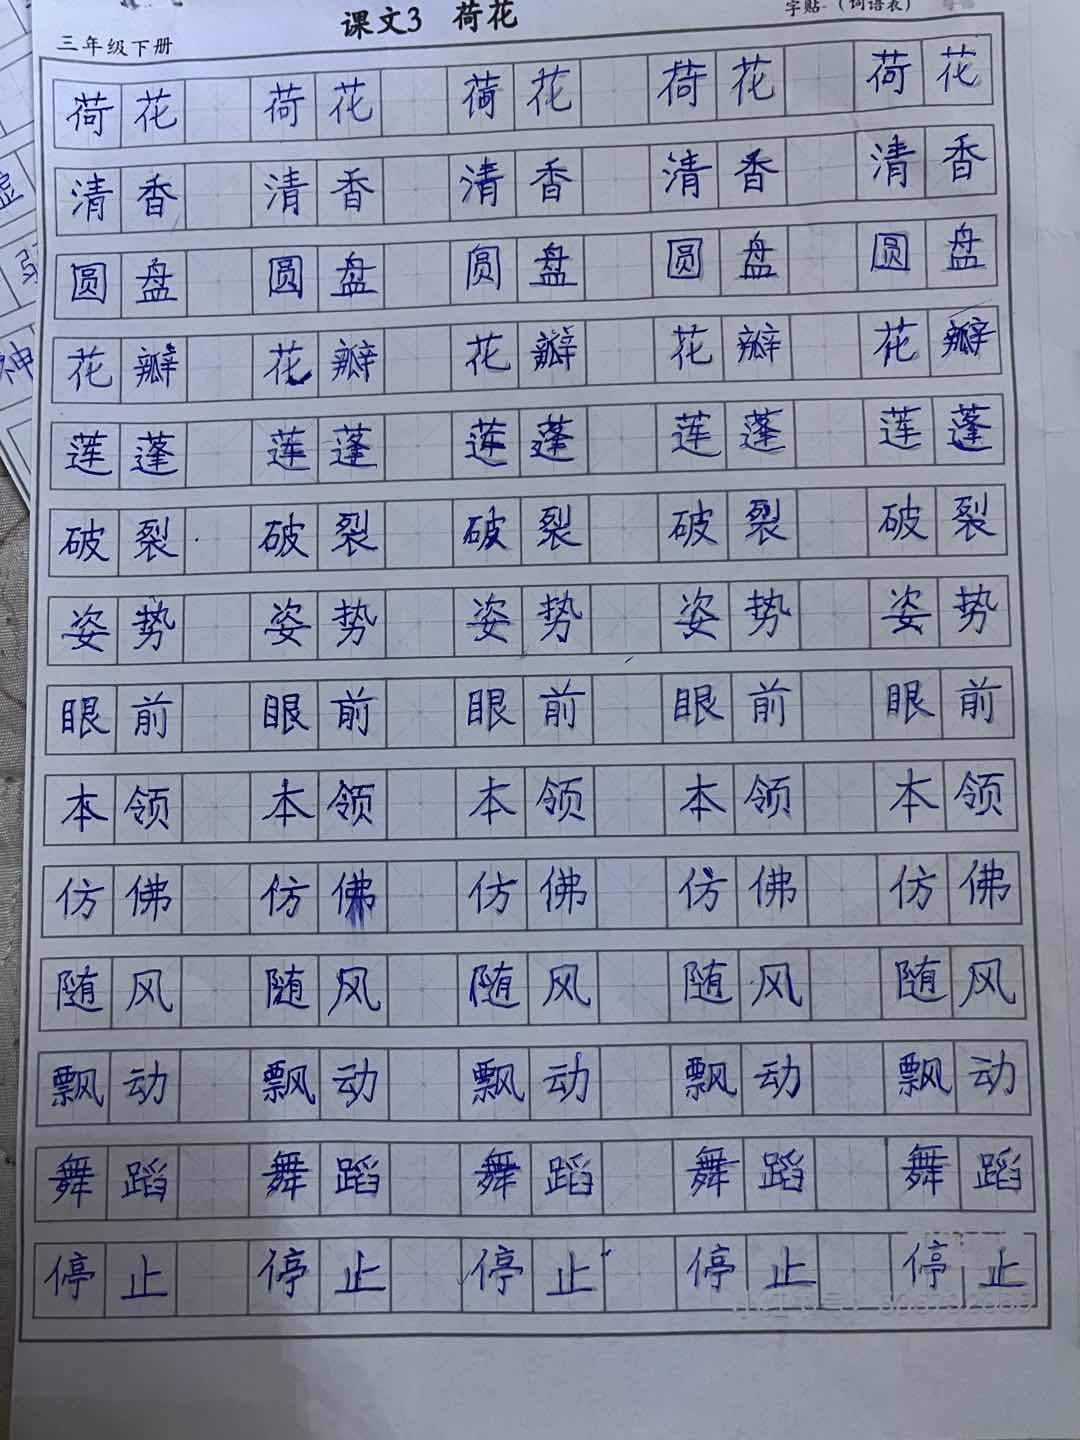 三年级下册 课文3 荷花 字贴-（词语表）
荷花 荷花 荷花 荷花 荷花
清香 清香 清香 清香 清香
圆盘 圆盘 圆盘 圆盘 圆盘
花瓣 花瓣 花瓣 花瓣 花瓣
莲蓬 莲蓬 莲蓬 莲蓬 莲蓬
破裂 破裂 破裂 破裂 破裂
姿势 姿势 姿势 姿势 姿势
眼前 眼前 眼前 眼前 眼前
本领 本领 本领 本领 本领
仿佛 仿佛 仿佛 仿佛 仿佛
随风 随风 随风 随风 随风
飘动 飘动 飘动 飘动 飘动
舞蹈 舞蹈 舞蹈 舞蹈 舞蹈
停止 停止 停止 停止 停止
神